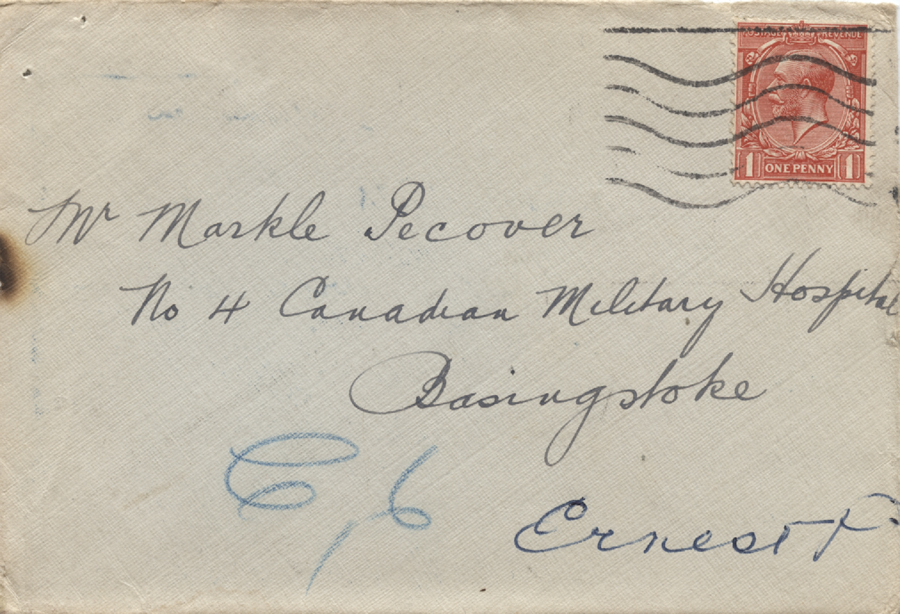 POSTAGE REVENUE
1 ONE PENNY 1
Mr Markle Pecover
No 4 Canadian Military Hospital
Basingstoke
Ernest F